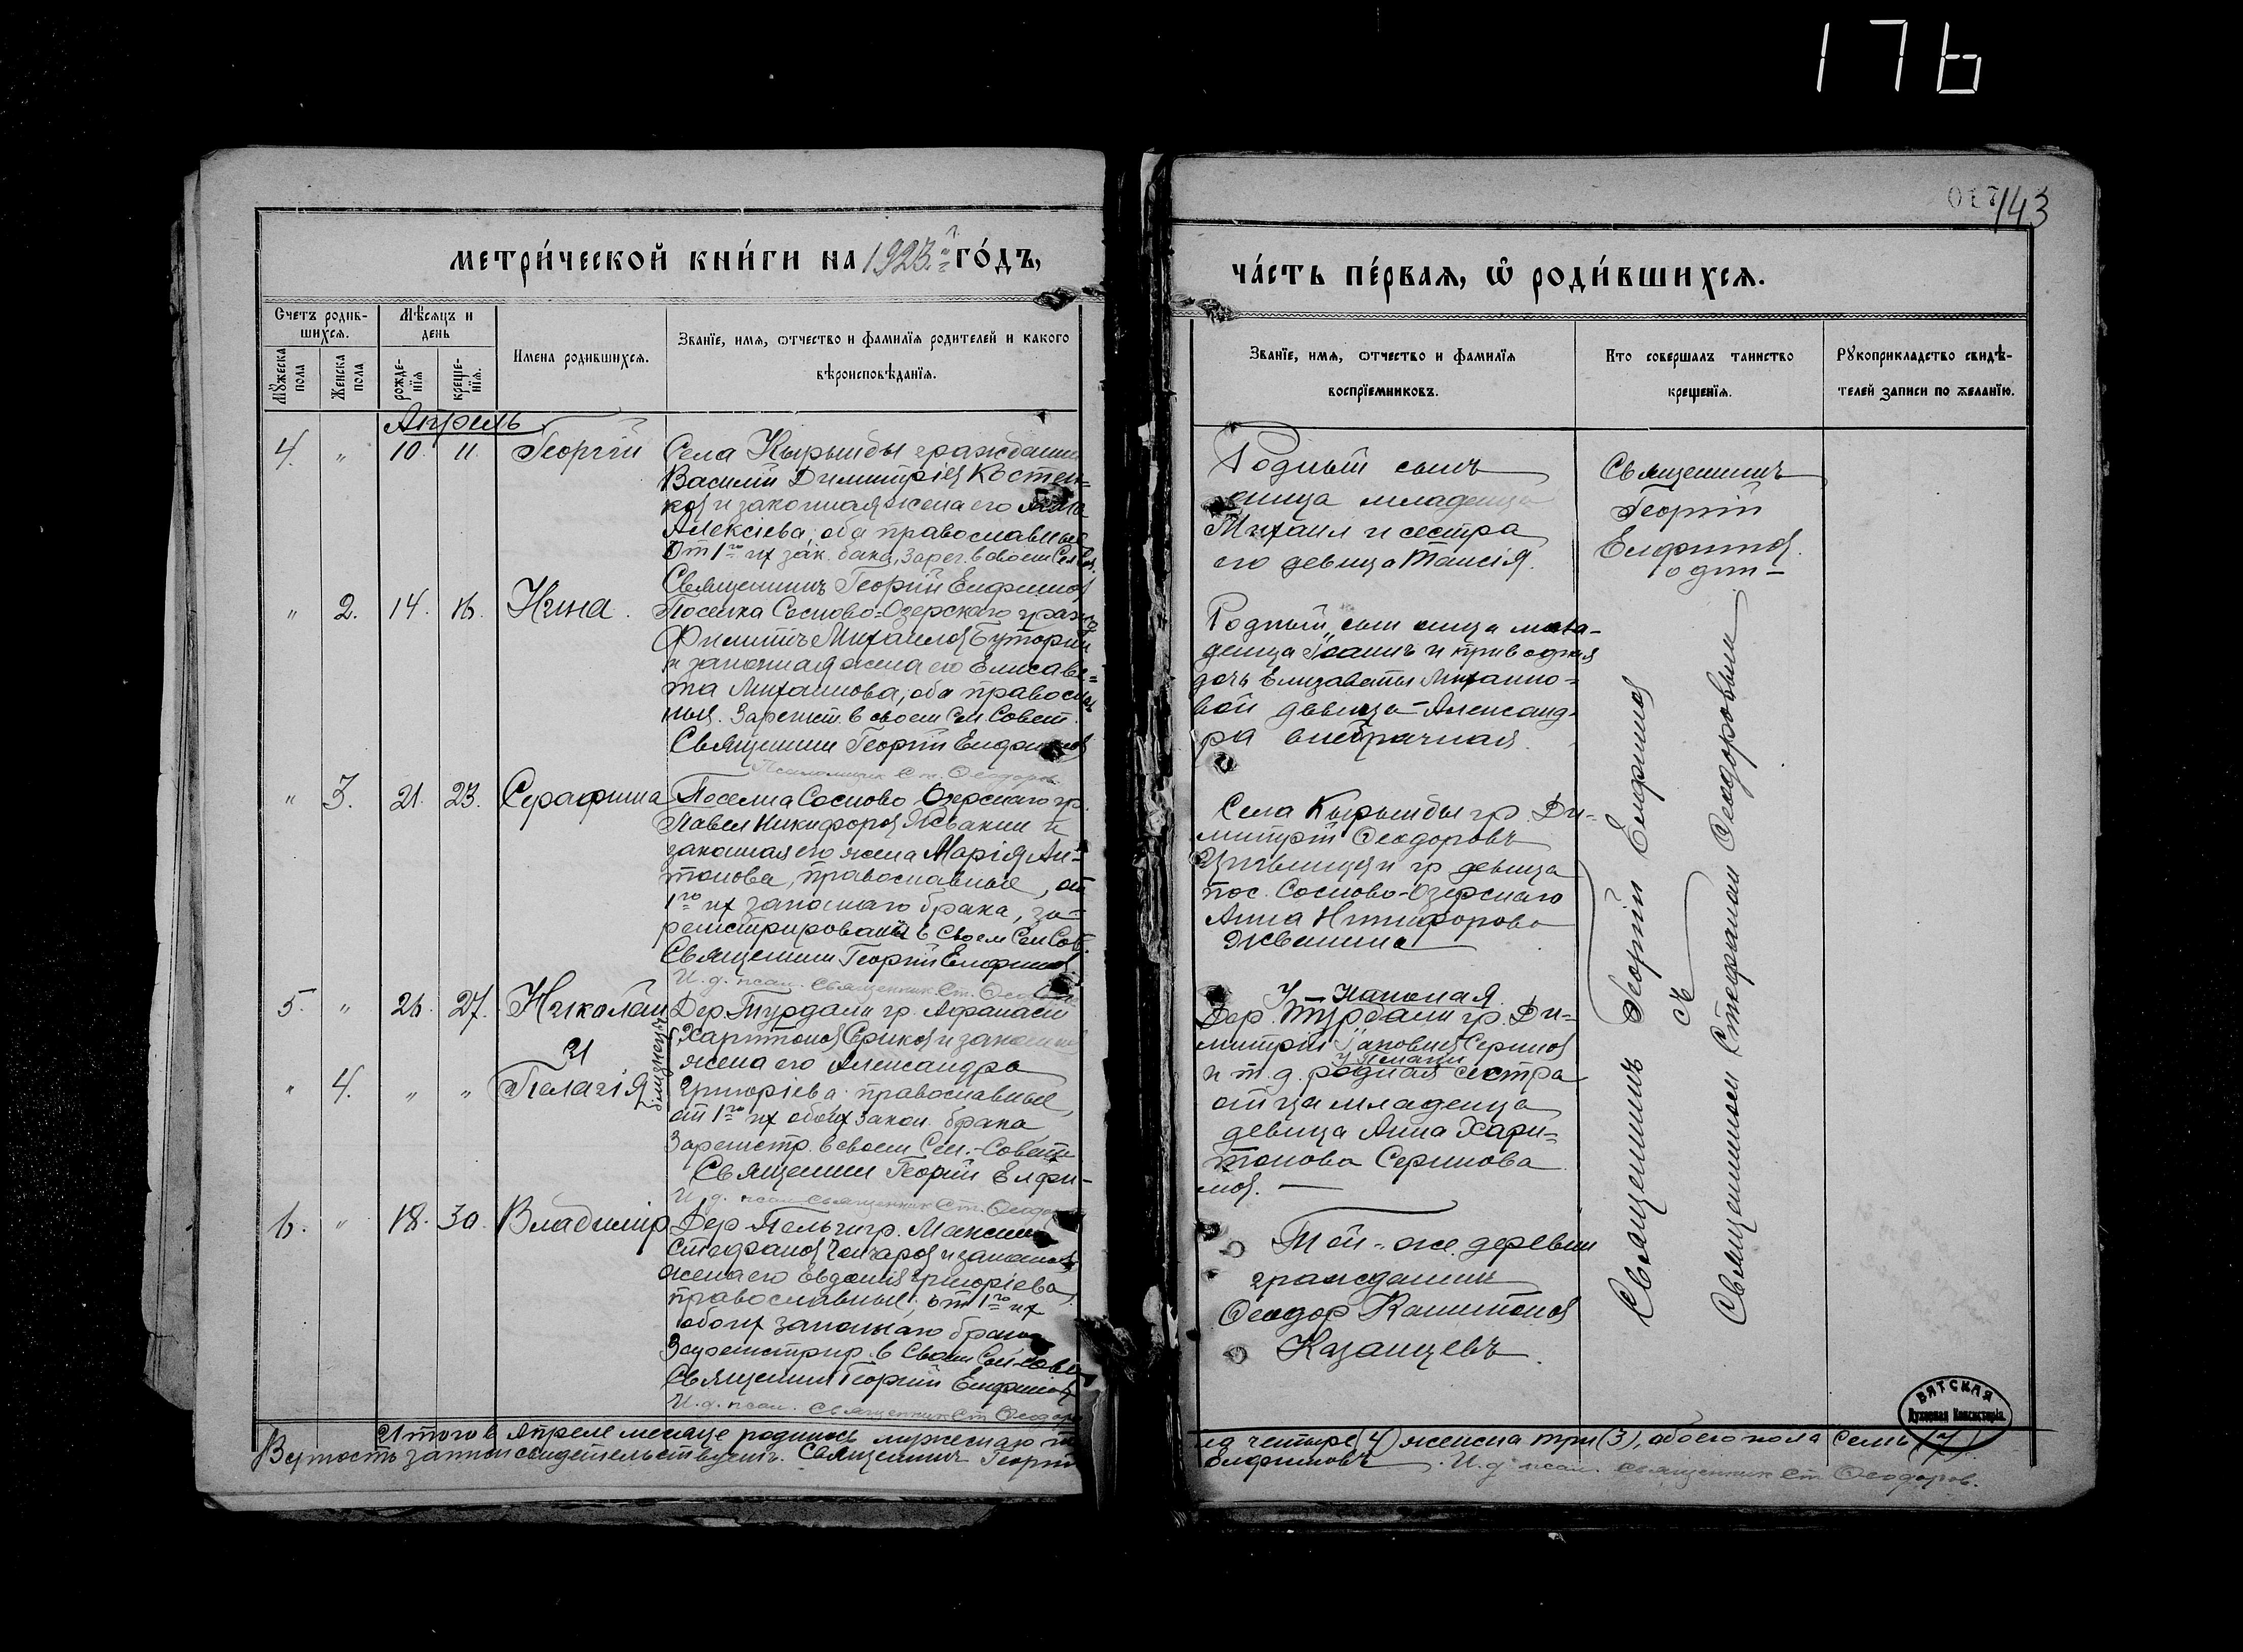 176
017
143
МЕТРИ́ЧЕСКОЙ КНИ́ГИ НА 1923 г. ГО́ДЪ,
ЧА́СТЬ ПЕ́РВАЯ, Ѡ РОДИ́ВШИХСЯ.
Счетъ родив-
шихся.
Мѣсяцъ и
день
Мужеска
пола
Женска
пола
рожде-
нїя
креще-
нїя.
Имена родившихся.
Званїе, имя, отчество и фамилїя родителей и какого
вѣроисповѣданїя.
Званїе, имя, отчество и фамилїя
воспрїемниковъ.
Кто совершалъ таинство
крещенїя.
Рукоприкладство свидѣ-
телей записи по желанїю.
Апрель
4. " 10. 11. Георгій
Села Кырынбы гражданин
Василій Димитріев Костен-
ков и законная жена его Анна
Алексіева, оба православные
От 1го их зак. брака, Зарег. в своем Сел. Сов.
Священник Георгій Елфимов
Родный сын
отца младенца
Михаил и сестра
его девица Таисія.
Священникъ
Георгій
Елфимов.
один
" 2. 14. 16. Нина.
Поселка Сосново-Озерскаго гражд.
Филиппъ Михаилов Буторин
и законная жена его Елисаве-
та Михаилова, оба православ
ныя. Зарегист. в своем Сел. Совет.
Священник Георгій Елфимов
Псаломщик Ст. Ѳеодоров.
Родный сын отца мла-
денца Іоаннъ и приводная
дочь Елизаветы Михаило-
вой девица Александ-
ра внебрачная.
" 3. 21. 23. Серафима
Поселка Сосново Озерскаго гр.
Павел Никифоров Жвакин и
законная его жена Марія Ан-
тонова, православные, от
1го их законнаго брака, за-
регистрирована в своем Сел. Сов.
Священник Георгій Елфимов
И. д. псал. священник Ст. Ѳеодоров
Села Кырынбы гр. Ди-
митрій Ѳеодоровъ
и гр. девица
пос. Сосново-Озерскаго
Анна Никифорова
Жвакина
5. " 26. 27. Николай
И
" 4. " " Пелагія
близнецы
Дер. Турдали гр. Афанасій
Харитонов Сериков и законная
жена его Александра
Григоріева православные,
от 1го их обоих закон. брака
Зарегистр. в своем Сел.-Совете
Священник Георгій Елфи-
мов.
И. д. псал. священник Ст. Ѳеодоров
У Николая
Дер. Турдали гр. Ди-
митрій Сериков
У Пелагіи
и т. д. родная сестра
отца младенца
девица Анна Хари-
тонова Серикова
6. " 18. 30. Владимір
Дер. Пельги гр. Максим
Стефанов и законная
жена его Евдокія Григоріева
православные; от 1го их
обоих законнаго брака
Зарегистрир. в Своем Сел-Совете
Священник Георгій Елфимов
И. д. псал. Священник Ст. Ѳеодоров
Той-же деревни
гражданин
Ѳеодор Капитонов
Казанцевъ.
Священникъ Георгій Елфимов
съ
Священником Стефаном Ѳеодоровым
ВЯТСКАЯ
Духовная Консисторія.
Итого в Апреле месяце родилось мужескаго по
ла четыре (4) женска три (3), обоего пола Семь (7)
Верность записи свидетельствуетъ. Священник Георгій
Елфимовъ. И. д. псал. священник Ст. Ѳеодоров.